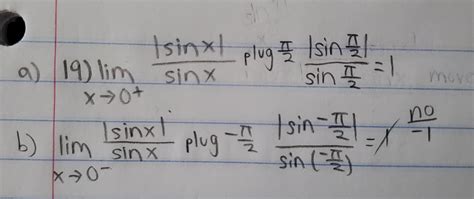 a) 19) lim x→0⁺ |sinx|/sinx plug π/2 |sin π/2|/sin π/2 = 1
b) lim x→0⁻ |sinx|/sinx plug -π/2 |sin -π/2|/sin(-π/2) = 1 no -1